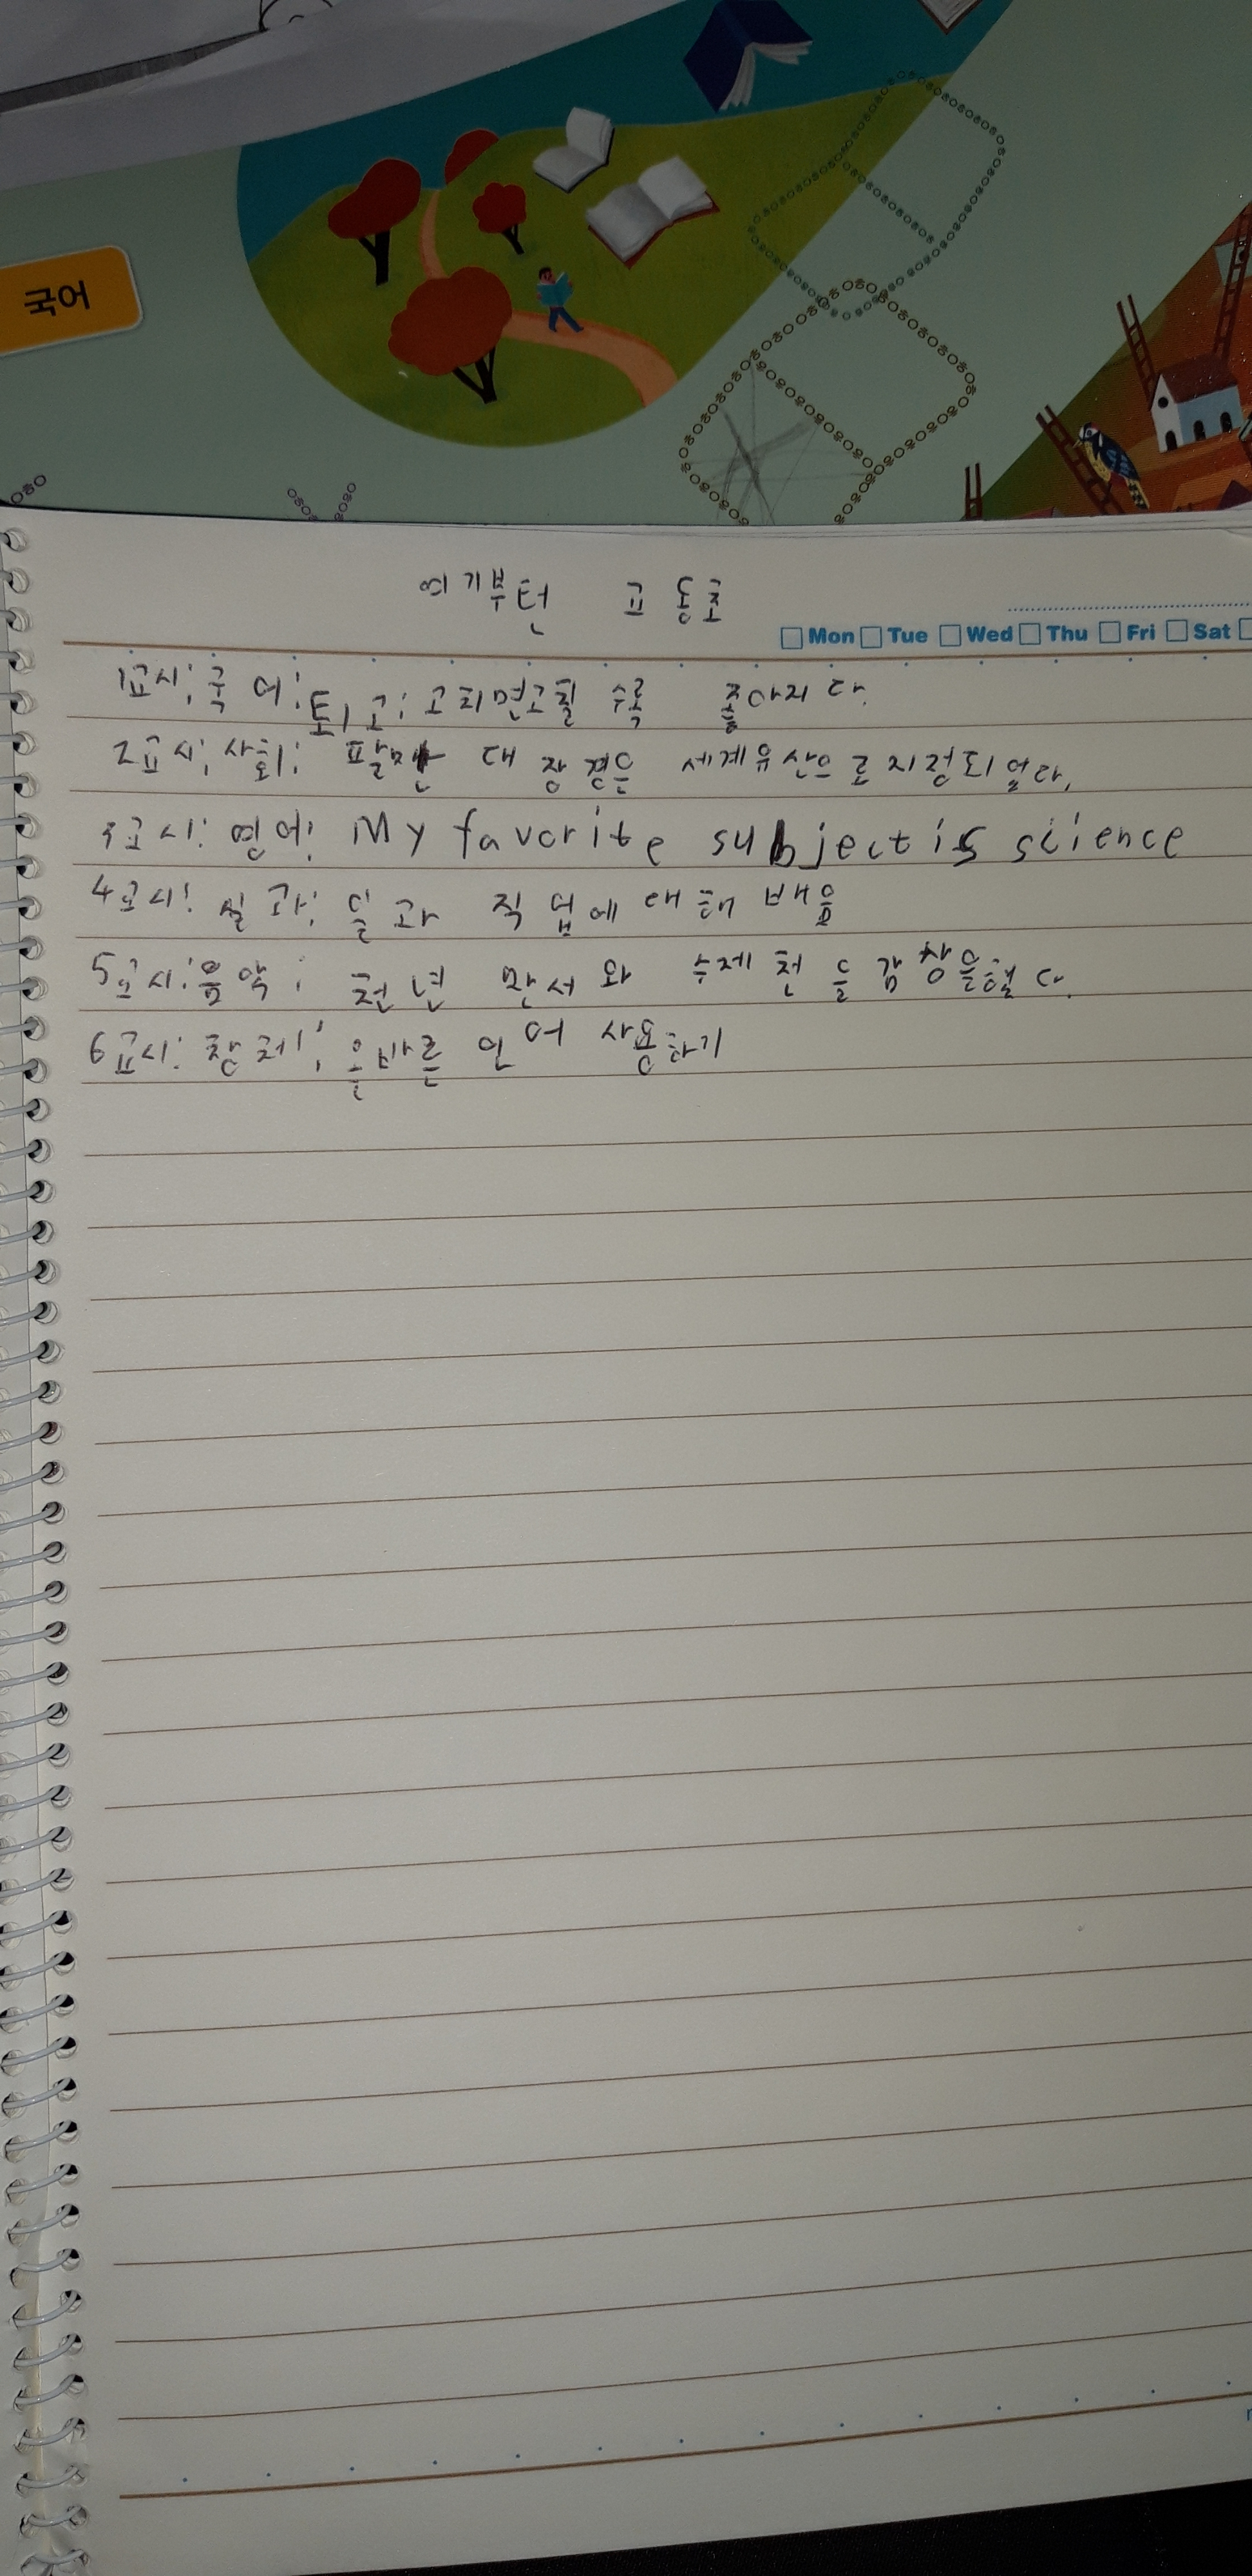 국어
여기부턴 고 동로
Mon Tue Wed Thu Fri Sat
1교시: 국어: 퇴고: 고치면고칠 수록 좋아지다.
2교시: 사회: 팔만 대장경은 세계유산으로지정되었다.
3교시: 영어: My favorite subject is science
4교시: 실과: 일과 직업에 대해 배움
5교시: 음악: 천년 만서와 수제천을 감상을했다.
6교시: 창체: 올바른 언어 사용하기